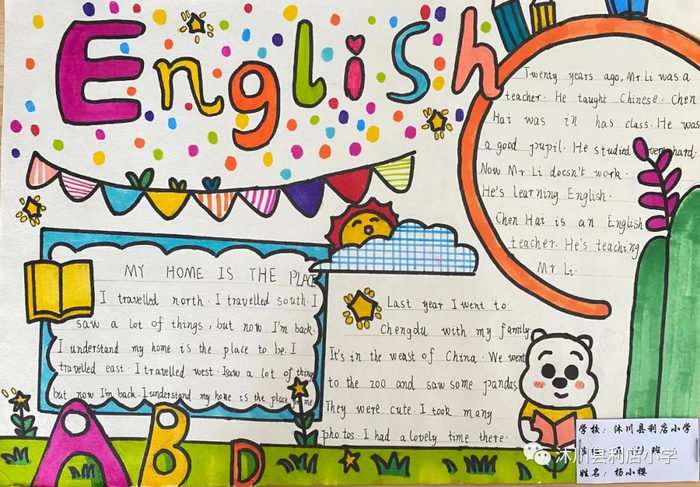 English
Twenty years ago, Mr Li was a
teacher. He taught Chinese. Chen
Hai was in has class. He was
a good pupil. He studied very hard.
Now Mr Li doesn't work.
He's Learning English.
Chen Hai is an English
teacher. He's teaching
Mr Li.
MY HOME IS THE PLACE
I travelled north. I travelled south. I
saw a lot of things, but now I'm back.
I understand my home is the place to be. I
travelled east. I travelled west. I saw a lot of thing
but now I'm back. I understand my home is the place
Last year I went to
Chengdu with my family
It's in the weast of China. We went
to the zoo and saw some pandas.
They were cute. I took many
photos. I had a lovely time there.
A B D
学校: 沐川县利店小学
班
姓名: 杨小樱
沐川县利店小学